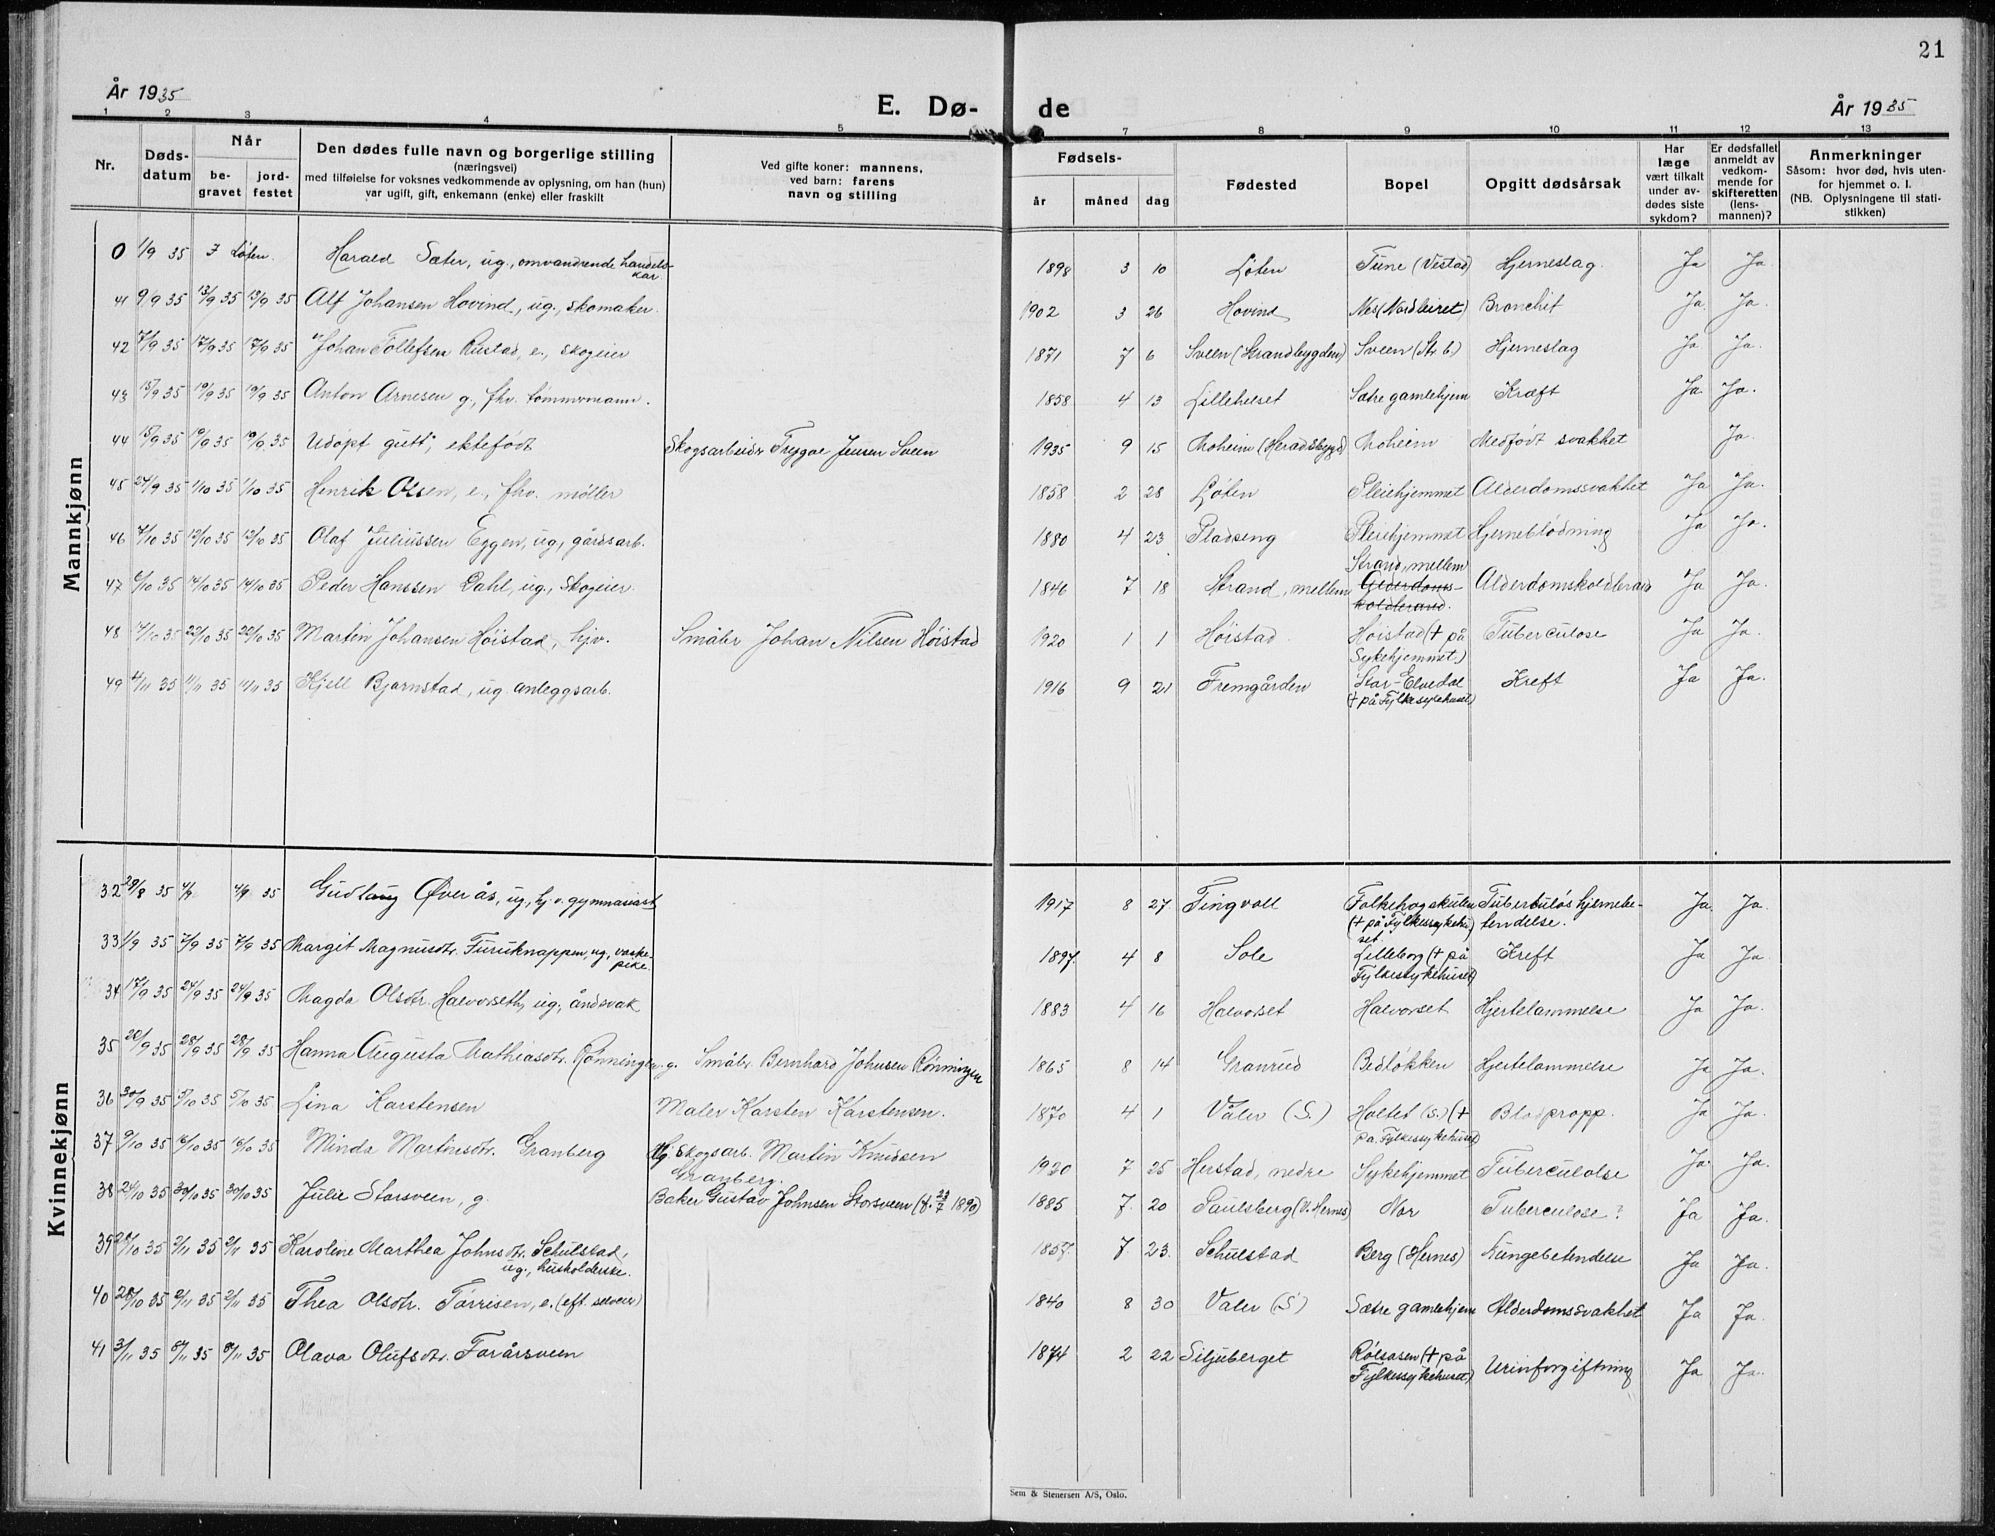 21
År 1935
E. Dø- de
År 1935
1 2 3 4 5 7 8 9 10 11 12 13
Nr.
Døds-
datum
Når
be-
gravet
jord-
festet
Den dødes fulle navn og borgerlige stilling
(næringsvei)
med tilføielse for voksnes vedkommende av oplysning, om han (hun)
var ugift, gift, enkemann (enke) eller fraskilt
Ved gifte koner: mannens,
ved barn: farens
navn og stilling
Fødsels-
år måned dag
Fødested
Bopel
Opgitt dødsårsak
Har
læge
vært tilkalt
under av-
dødes siste
sykdom?
Er dødsfallet
anmeldt av
vedkom-
mende for
skifteretten
(lens-
mannen)?
Anmerkninger
Såsom: hvor død, hvis uten-
for hjemmet o. l.
(NB. Oplysningene til stati-
stikken)
Mannkjønn
0 1/9 35 Løten. Harald Sæter, ug., omvandrende handels-
kar 1898 3 10 Løten Tune (Vestad) Hjerneslag. Ja Ja
41 9/9 35 13/9 35 13/9 35 Alf Johansen Hovind, ug., skomaker. 1902 3 26 Hovind Nes (Nordleiret) Bronchit Ja Ja.
42 7/9 35 17/9 35 17/9 35 Johan Tollefsen Rustad, e., skogeier 1871 7 6 Sveen (Strandbygden) Sveen (Str b.) Hjerneslag Ja Ja.
43 15/9 35 19/9 35 19/9 35 Anton Arnesen g., fhv. tømmermann. 1858 4 13 Lilleholset Sætre gamlehjem Kræft Ja Ja.
44 15/9 35 19/9 35 19/9 35 Udøpt gutt, ektefødt Skogsarbeider Trygve Jensen Sveen 1935 9 15 Moheim (Heradsbygd) Moheim Medfødt svakhet Ja.
45 27/9 35 1/10 35 1/10 35 Henrik Olsen, e., fhv. møller 1858 2 28 Løten Pleiehjemmet Alderdomssvakhet Ja Ja.
46 7/10 35 12/10 35 12/10 35 Olaf Juliussen Eggen, ug., gårdsarb. 1880 4 23 Pladseng Pleiehjemmet Hjerneblødning Ja Ja.
47 6/10 35 14/10 35 14/10 35 Peder Hanssen Dahl, ug., skogeier. 1846 7 18 Strand, mellem Strand, mellem
Alderdoms-
koldbrand. Alderdomskoldbrand Ja Ja.
48 14/10 35 22/10 35 22/10 35 Martin Johansen Høistad, hjv. Småbr Johan Nilsen Høistad 1920 1 1 Høistad. Høistad († på
Sykehjemmet.) Tuberculose Ja Ja.
49 35 11/11 35 11/11 35 Kjell Bjørnstad, ug. anleggsarb. 1916 9 21 Fremgården Stor-Elvedal
(† på Fylkessykehuset) Kreft Ja Ja.
Kvinnekjønn
32 29/8 35 4/9 4/9 35 Gudlaug Øverås, ug., hj.v. gymnasiast 1917 8 27 Tingvoll Folkehøgskulen
(† på Fylkessykehu-
set. Tuberkuløs hjernebe-
tendelse. Ja. Ja.
33 1/9 35 7/9 35 7/9 35 Margit Magnusdtr. Furuknappen, ug., vaske-
pike. 1897. 4 8 Sole Lilleborg († på
Fylkessykehuset) Kreft Ja Ja.
34 17/9 35 24/9 35 24/9 35 Magda Olsdtr. Halvorseth, ug., åndsvak 1883 4 16 Halvorset Halvorset Hjertelammelse Ja Ja.
35 20/9 35 28/9 35 28/9 35 Hanna Augusta Mathiasdtr. Rønningen g. Småbr. Bernhard Johnsen Rønningen 1865 8 14 Granrud Bedløkken Hjertelammelse Ja Ja.
36 30/9 35 5/10 35 5/10 35 Lina Karstensen Maler Karsten Karstensen. 1870 4 1 Våler (S.) Holtet (S.) (†
på Fylkessykehuset) Blodpropp. Ja Ja.
37 9/10 35 16/10 35 16/10 35 Minda Martinsdtr. Granberg Skogsarb. Martin Knudsen
Granberg. 1920 7 25 Herstad, nedre Sykehjemmet Tuberculose Ja. Ja.
38 24/10 35 30/10 35 30/10 35 Julie Storsveen, g. Baker Gustav Johnsen Storsveen (f. 23/7 1890) 1885 7. 20 Paulsberg (V. Hernes) Nor Tuberculose? Ja Ja.
39 35 2/11 35 2/11 35 Karoline Marthea Johnsdtr. Schulstad,
ug., husholderske. 1857. 7 23. Schulstad Berg (Hernes) Lungebetendelse Ja Ja.
40 28/10 35 2/11 35 2/11 35 Thea Olsdtr. Tørrisen, e. (eft. selveier) 1840 8 30 Valer (S) Sætre gamlehjem Alderdomssvakhet Ja Ja.
41 3/11 35 8/11 35 8/11 35 Olava Olufsdtr. Forårsveen 1874 2 22 Siljuberget Rølsåsen († på
Fylkessykehuset) Urinforgiftning Ja Ja.
Sem & Stenersen A/S, Oslo.